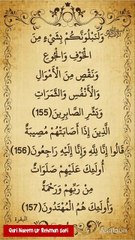 وَلَنَبْلُوَنَّكُمْ بِشَيْءٍ مِنَ
الْخَوْفِ وَالْجُوعِ
وَنَقْصٍ مِنَ الْأَمْوَالِ
وَالْأَنْفُسِ وَالثَّمَرَاتِ
وَبَشِّرِ الصَّابِرِينَ (155)
الَّذِينَ إِذَا أَصَابَتْهُمْ مُصِيبَةٌ
قَالُوا إِنَّا لِلَّهِ وَإِنَّا إِلَيْهِ رَاجِعُونَ (156)
أُولَئِكَ عَلَيْهِمْ صَلَوَاتٌ
مِنْ رَبِّهِمْ وَرَحْمَةٌ
وَأُولَئِكَ هُمُ الْمُهْتَدُونَ (157)
البقرة
Qari Nazem ur Rehman Sani